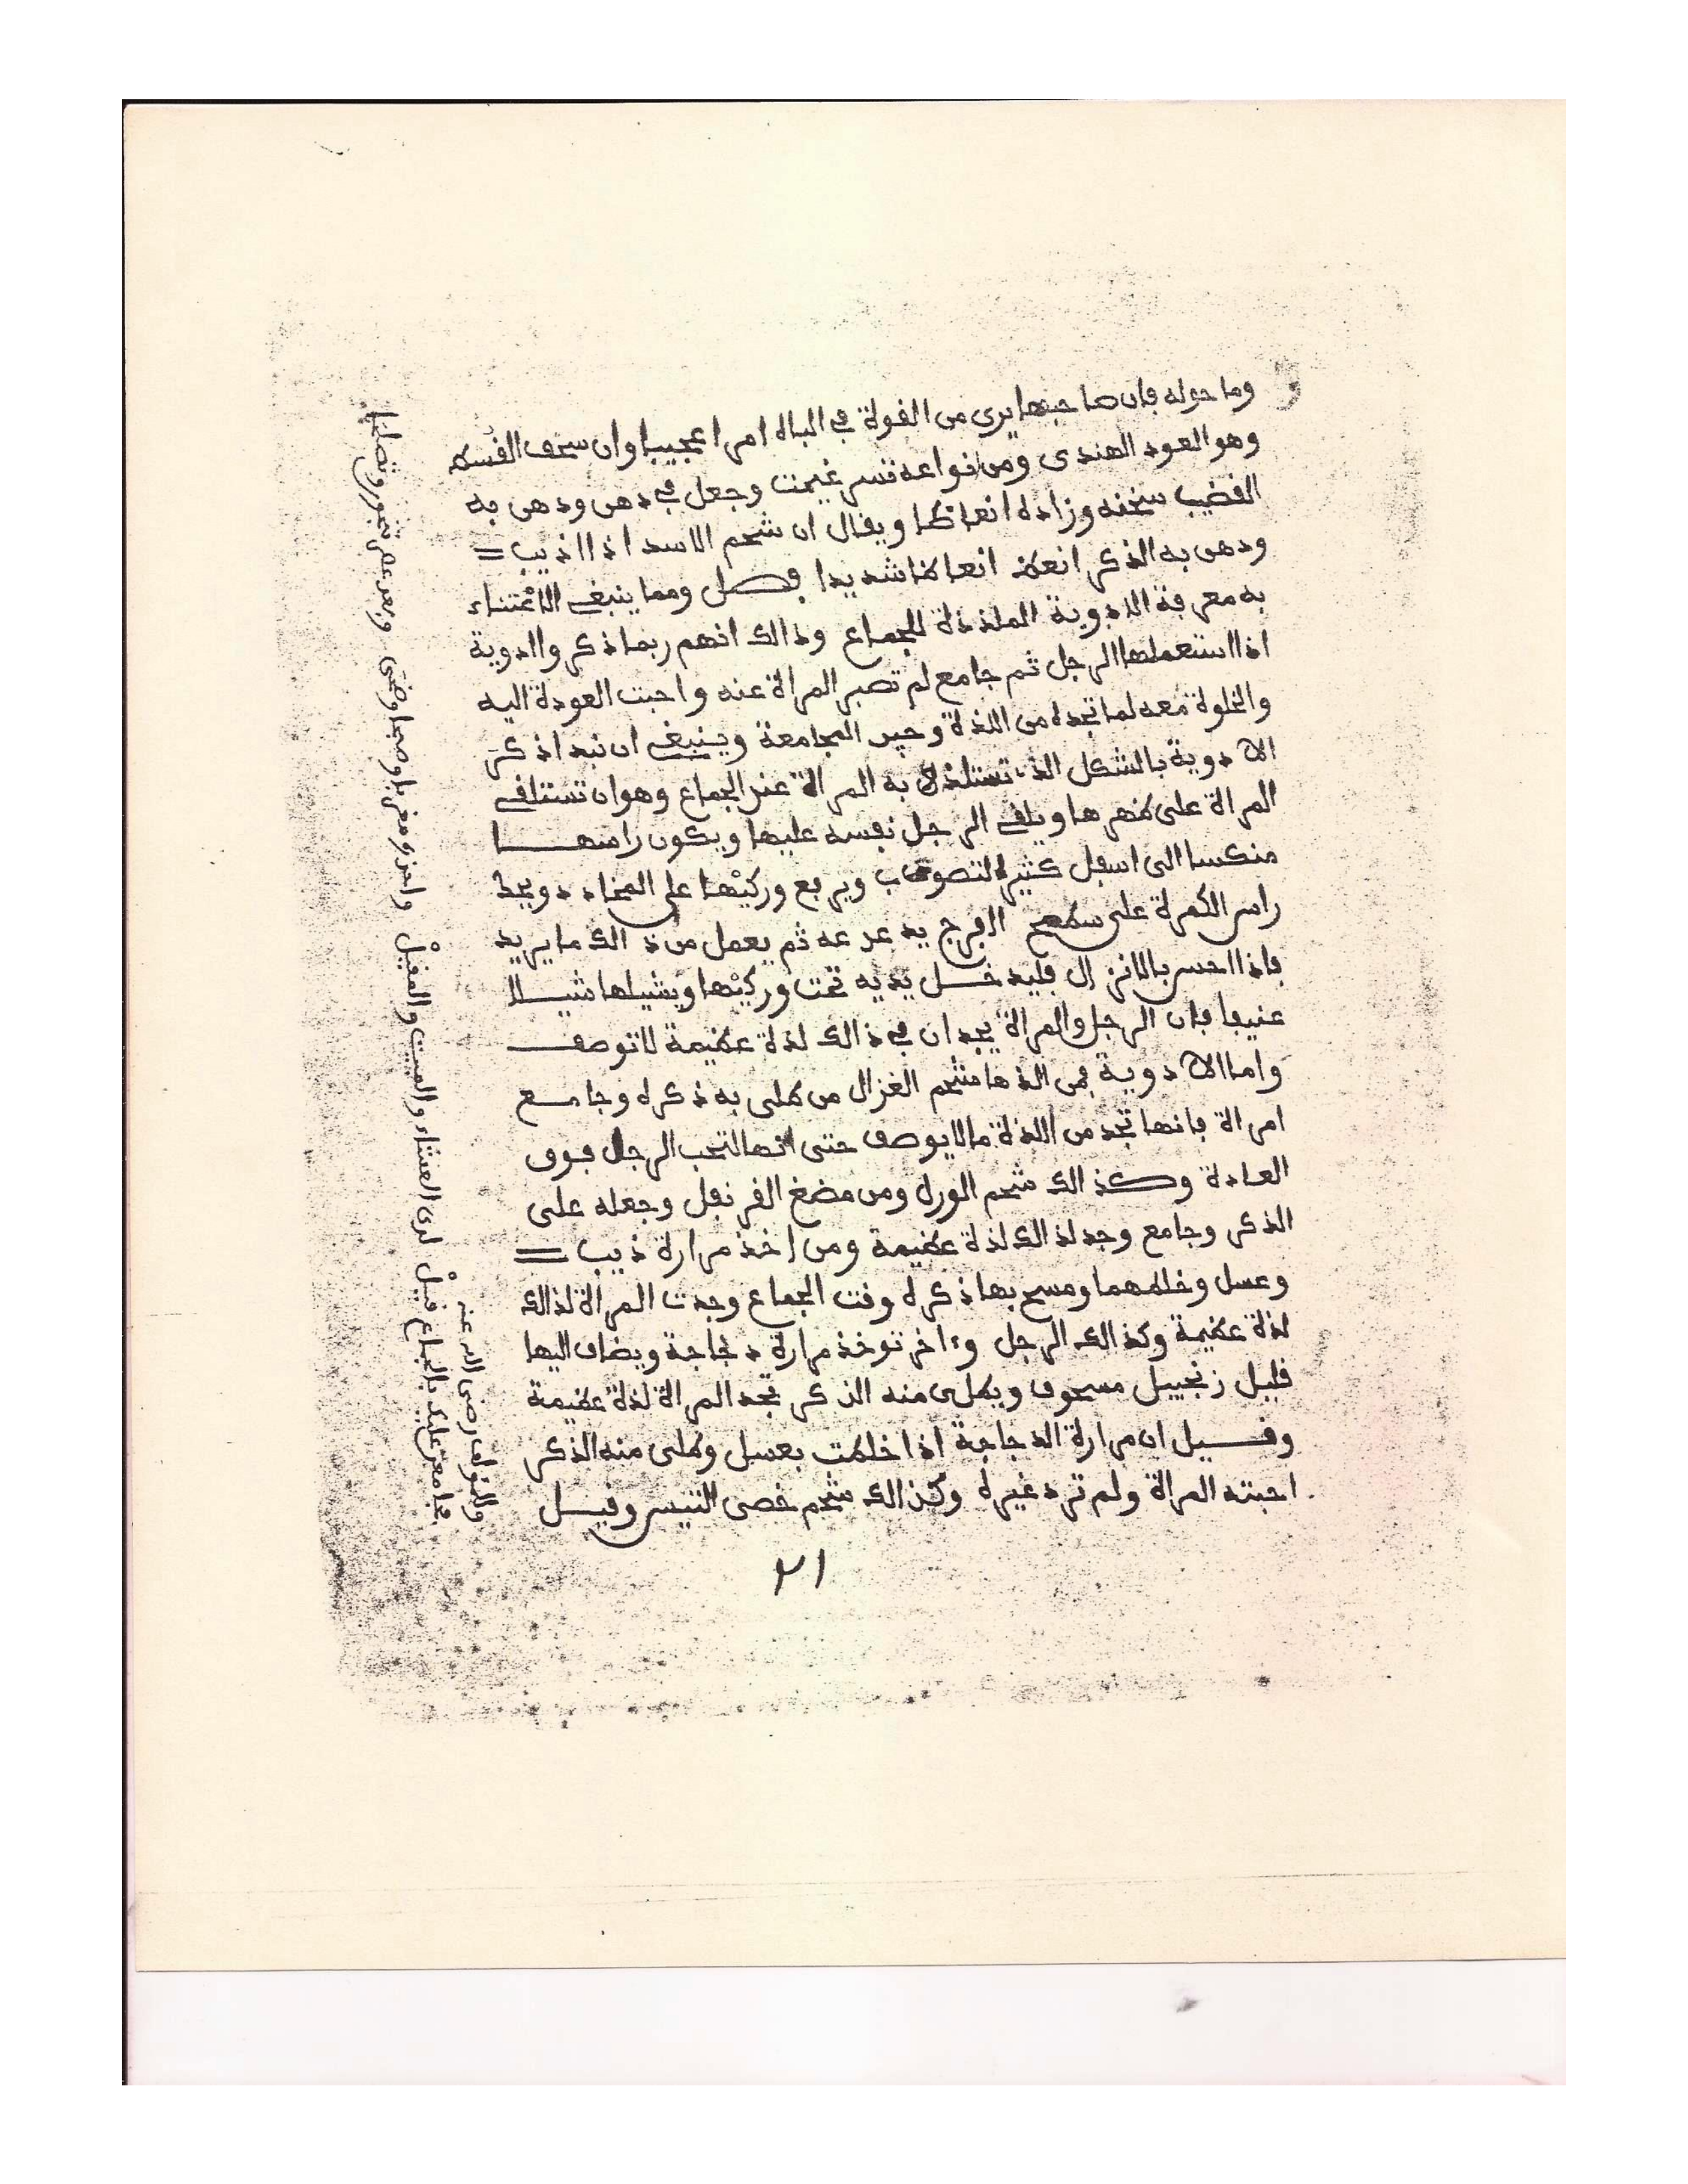 وما حوله فان صاحبها يرى من القوة في الباه امرا عجيبا وان سحق القسط
وهو العود الهندي ومن انواعه قسر غيمت وجعل في دهن ودهن به
القضيب سخنه وزاده انعاظا ويقال ان شحم الاسد اذا اذيب =
ودهن به الذكر انعظ انعاظا شديدا فصل ومما ينبغي الاعتناء
به معرفة الادوية الملذذة للجماع وذالك انهم ربما ذكروا ادوية
اذا استعملها الرجل ثم جامع لم تصبر المراة عنه واحبت العودة اليه
والخلوة معه لما تجده من اللذة وحين المجامعة وينبغي ان نبدا ذكر
الادوية بالشكل الذي تستلذ به المراة عند الجماع وهو ان تستلقي
المراة على ظهرها ويلقي الرجل نفسه عليها ويكون راسها
منكسا الى اسفل كثير التصوب ويرفع وركيها على المخاد ويحط
راس الكمرة على سطح الفرج يدغدغه ثم يعمل من ذالك ما يريد
فاذا احس بالانزال فليدخل يديه تحت وركيها ويشيلها شيلا
عنيفا فان الرجل والمراة يجدان في ذالك لذة عظيمة لا توصف
واما الادوية فمن الذها شحم الغزال من طلى به ذكره وجامع
امراة فانها تجد من اللذة ما لا يوصف حتى انها لتحب الرجل فوق
العادة وكذالك شحم الورل ومن مضغ القرنفل وجعله على
الذكر وجامع وجد لذالك لذة عظيمة ومن اخذ مرارة ذيب =
وعسل وخلطهما ومسح بها ذكره وقت الجماع وجدت المراة لذالك
لذة عظيمة وكذالك الرجل وءاخر توخذ مرارة دجاجة ويضاف اليها
قليل زنجبيل مسحوق ويطلى منه الذكر تجد المراة لذة عظيمة
وقيل ان مرارة الدجاجة اذا خلطت بعسل وطلي منه الذكر
احبته المراة ولم ترد غيره وكذالك شحم خصى التيس وقيل
٢١
وللمؤلف رضى الله عنه
عليك بالجماع قبل لدى العشاء والمبيت والمقيل
واحذره مغربا وصبحا وضحى وبعد عصر